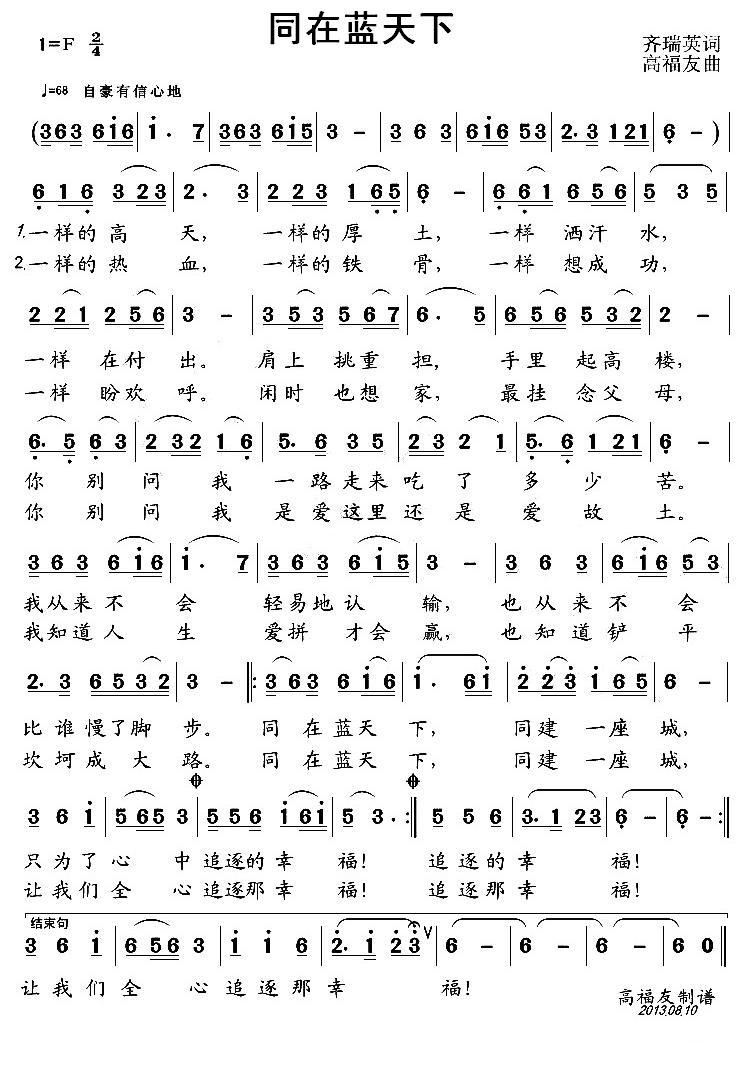 同在蓝天下
1=F 2/4
齐瑞英词
高福友曲
♩=68 自豪有信心地
(363 6i6 | i. 7 | 363 6i5 | 3 - | 3 6 3 | 6i6 53 | 2.3 121 | 6 - )
6 1 6 3 23 | 2. 3 | 2 2 3 1 65 | 6 - | 6 61 656 | 5 3 5 |
1.一样的高 天, 一样的厚 土, 一样 洒汗 水,
2.一样的热 血, 一样的铁 骨, 一样 想成 功,
2 2 1 2 5 6 | 3 - | 3 5 3 5 6 7 | 6. 5 | 6 5 6 5 3 2 | 2 - |
一样 在付 出。 肩上 挑重 担, 手里 起高 楼,
一样 盼欢 呼。 闲时 也想 家, 最挂 念父 母,
6. 5 6 3 | 2 32 1 6 | 5. 6 35 | 2 3 2 1 | 5. 6 1 21 | 6 - |
你 别 问 我 一路走来吃 了 多 少 苦。
你 别 问 我 是爱这里还 是 爱 故 土。
3 6 3 6 i6 | i. 7 | 3 6 3 6 i 5 | 3 - | 3 6 3 | 6 i6 53 |
我从来不 会 轻易地认 输, 也从来不 会
我知道人 生 爱拼 才会 赢, 也知道铲 平
2. 3 6 5 3 2 | 3 - |: 363 6 i6 | i. 6i | 2 2 i 65 | 6 - |
比谁慢了脚 步。 同 在蓝天 下, 同建 一座 城,
坎坷成大 路。 同 在蓝天 下, 同建 一座 城,
3 6 i | 5 65 3 | 5 5 6 i 6i | 5 3. :| 5 5 6 | 3. 1 23 | 6 - | 6 - :|
只为了心 中追逐的幸 福! 追逐的幸 福!
让我们全 心追逐那幸 福! 追逐那幸 福!
结束句
3 6 i | 6 56 3 | i i 6 | 2. i 2 3 V | 6 - | 6 - | 6 - | 6 0 ‖
让我们全 心追逐那 幸 福!
高福友制谱
2013.08.10